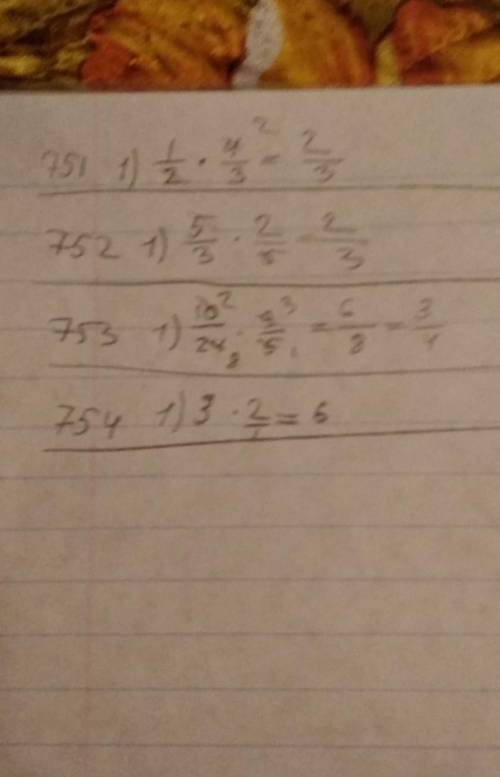 751 1) 1/2 · 4/3 ² = 2/3
752 1) 5/3 · 2/5 = 2/3
753 1) 10²/24₈ · 9³/5₁ = 6/8 = 3/4
754 1) 3 · 2/1 = 6